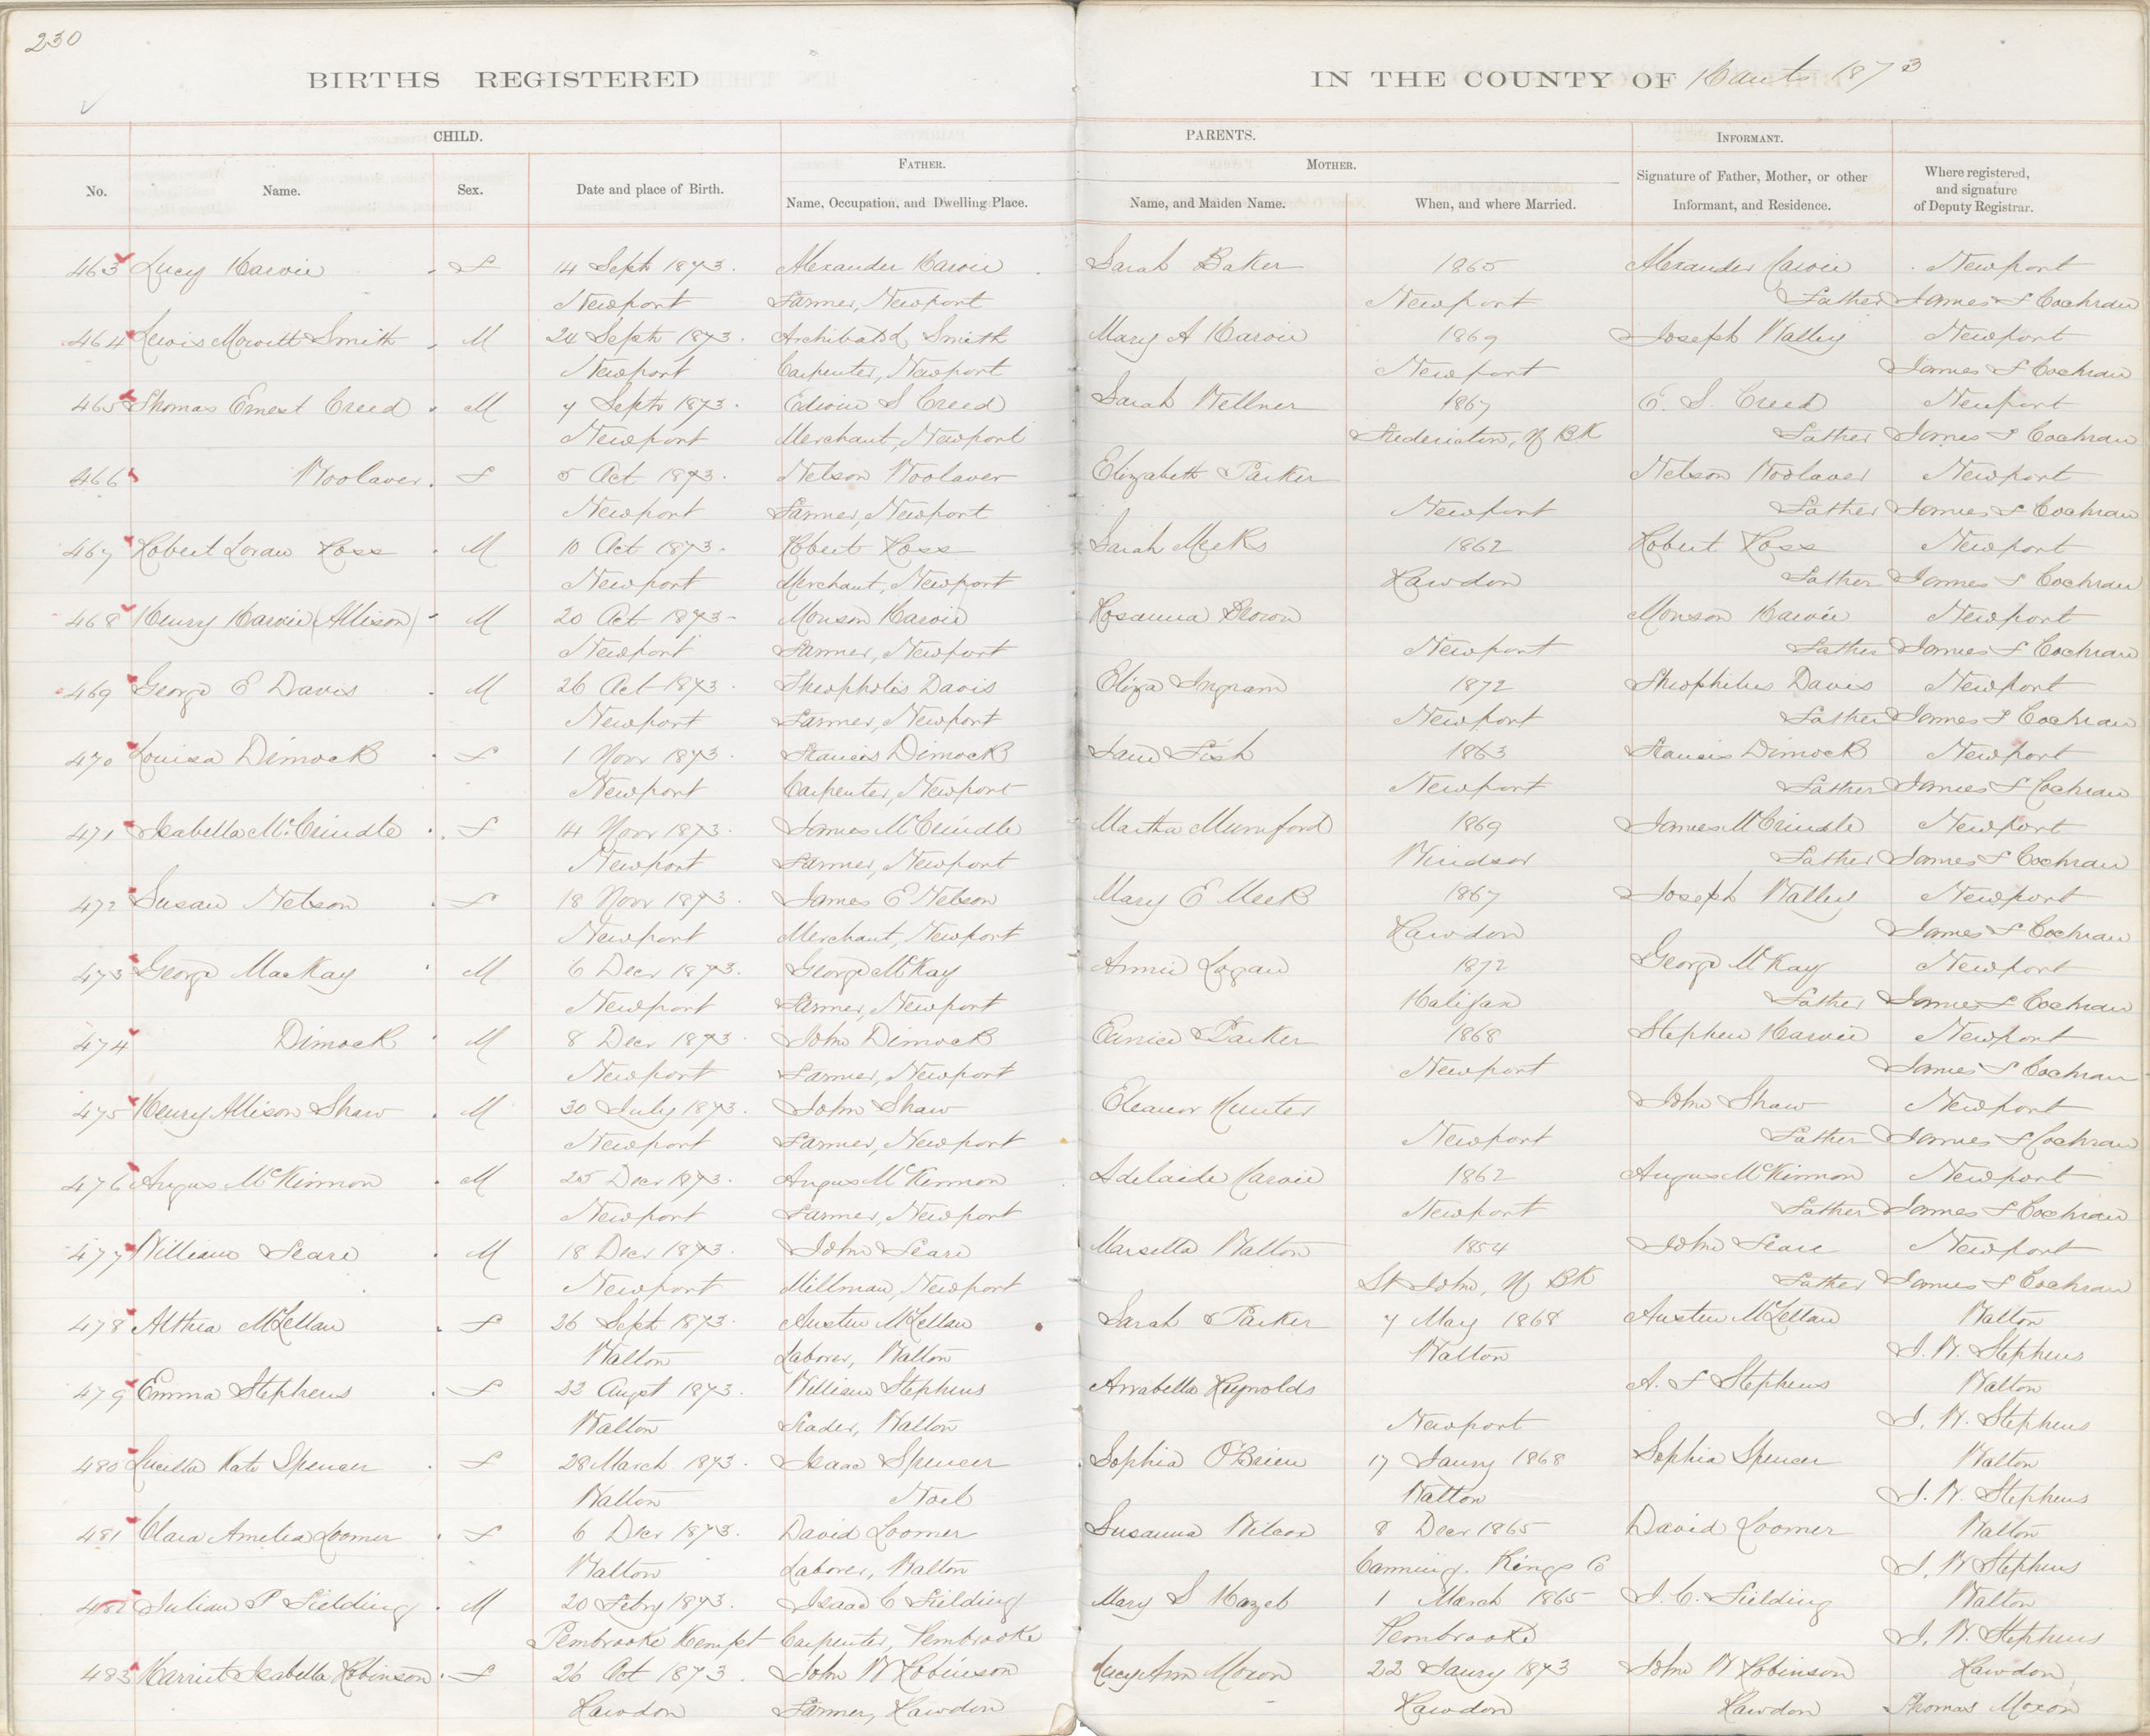 230
BIRTHS REGISTERED IN THE COUNTY OF Hants 1873
CHILD. PARENTS. INFORMANT.
FATHER. MOTHER.
No. Name. Sex. Date and place of Birth. Name, Occupation, and Dwelling Place. Name, and Maiden Name. When, and where Married. Signature of Father, Mother, or other Informant, and Residence. Where registered, and signature of Deputy Registrar.
463 Lucy Harvie F 14 Sept 1873. Alexander Harvie Sarah Baker 1865 Alexander Harvie Newport
Newport Farmer, Newport Newport Father James F Cochran
464 Lewis Mowitt Smith M 24 Sept 1873. Archibald Smith Mary A Harvie 1869 Joseph Walley Newport
Newport Carpenter, Newport Newport James F Cochran
465 Thomas Ernest Creed M 7 Septr 1873. Edwin S Creed Sarah Wellner 1867 E. S. Creed Newport
Newport Merchant, Newport Fredericton, N BK Father James F Cochran
466 Woolaver F 5 Oct 1873. Nelson Woolaver Elizabeth Parker Nelson Woolaver Newport
Newport Farmer, Newport Newport Father James F Cochran
467 Robert Loran Ross M 10 Oct 1873. Robert Ross Sarah Meeks 1862 Robert Ross Newport
Newport Merchant, Newport Rawdon Father James F Cochran
468 Henry Harvie (Allison) M 20 Oct 1873 Monson Harvie Rosanna Brown Monson Harvie Newport
Newport Farmer, Newport Newport Father James F Cochran
469 George E Davis M 26 Oct 1873. Theopholis Davis Eliza Ingram 1872 Theophilus Davis Newport
Newport Farmer, Newport Newport Father James F Cochran
470 Louisa Dimock F 1 Novr 1873. Francis Dimock Jane Fish 1863 Francis Dimock Newport
Newport Carpenter, Newport Newport Father James F Cochran
471 Isabella McCrindle F 14 Novr 1873. James McCrindle Martha Mumford 1869 James McCrindle Newport
Newport Farmer, Newport Windsor Father James F Cochran
472 Susan Nelson F 18 Novr 1873. James E Nelson Mary E Meek 1867 Joseph Walley Newport
Newport Merchant, Newport Rawdon James F Cochran
473 George MacKay M 6 Decr 1873. George McKay Annie Logan 1872 George McKay Newport
Newport Farmer, Newport Halifax Father James F Cochran
474 Dimock M 8 Decr 1873. John Dimock Eunice Parker 1868 Stephen Harvie Newport
Newport Farmer, Newport Newport James F Cochran
475 Henry Allison Shaw M 30 July 1873. John Shaw Eleanor Hunter John Shaw Newport
Newport Farmer, Newport Newport Father James F Cochran
476 Angus McKinnon M 25 Decr 1873. Angus McKinnon Adelaide Harvie 1862 Angus McKinnon Newport
Newport Farmer, Newport Newport Father James F Cochran
477 William Scare M 18 Decr 1873. John Scare Marsella Walton 1854 John Scare Newport
Newport Millman, Newport St John, N BK Father James F Cochran
478 Althea McLellan F 26 Sept 1873. Austen McLellan Sarah Parker 7 May 1868 Austen McLellan Walton
Walton Laborer, Walton Walton J. W. Stephens
479 Emma Stephens F 22 Augst 1873. William Stephens Arrabella Reynolds A. F Stephens Walton
Walton Trader, Walton Newport J. W. Stephens
480 Lucilla Kate Spencer F 28 March 1873. Isaac Spencer Sophia O'Brien 17 Janry 1868 Sophia Spencer Walton
Walton Noel Walton J. W. Stephens
481 Clara Amelia Loomer F 6 Decr 1873. David Loomer Susanna Wilcox 8 Decr 1865 David Loomer Walton
Walton Laborer, Walton Canning. Kings Co J. W Stephens
482 Julian P Fielding M 20 Febry 1873. Isaac C Fielding Mary S Hazel 1 March 1865 J. C. Fielding Walton
Pembrooke Kempt Carpenter, Pembrooke Pembrooke J. W. Stephens
483 Harriet Isabella Robinson F 26 Oct 1873. John W Robinson Lucy Ann Moxon 22 Janry 1873 John W Robinson Rawdon
Rawdon Farmer, Rawdon Rawdon Rawdon Thomas Moxon